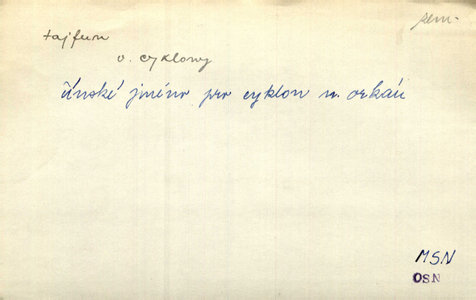 sem.
tajfun
v. cyklony
čínské jméno pro cyklon n. orkán
MSN
OSN